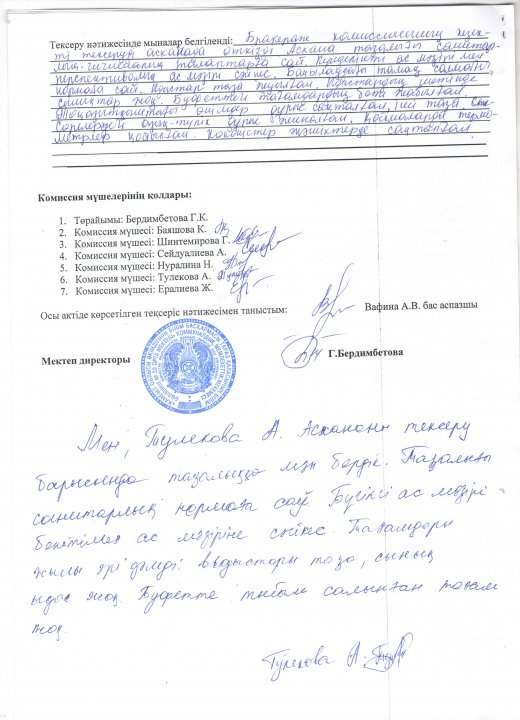 Тексеру нәтижесінде мыналар белгіленді: Бракераж комиссиясының күнделікті
тексеруін асханада өткізді Асхана тазалығы санитар
лық-гигиеналық талаптарға сай. Күнделікті ас мәзірі мен
перспективалық ас мәзірі сәйкес. Бақылаудағы тамақ салмағы
нормаға сай. Ыдыстар таза жуылған. Ыдыстардың ішінде
сынықтар жоқ. Буфеттей тағамдардың беті жабылған
Тоңазытқыштағы өнімдер дұрыс сақталған, іші таза
дұрыс Қоймаларда термо-
метрлер қойылған. Көкөністер жәшіктерде сақталған
Комиссия мүшелерінің қолдары:
1. Төрайымы: Бердимбетова Г.К.
2. Комиссия мүшесі: Баяшова К.
3. Комиссия мүшесі: Шинтемирова Г.
4. Комиссия мүшесі: Сейдуалиева А.
5. Комиссия мүшесі: Нуралина Н.
6. Комиссия мүшесі: Тулекова А.
7. Комиссия мүшесі: Ералиева Ж.
Осы актіде көрсетілген тексеріс нәтижесімен таныстым: Вафина А.В. бас аспазшы
Мектеп директоры Г.Бердимбетова
Мен, Тулекова А. Асхананы тексеру
барысында тазалыққа мән бердік. Тазалығы
санитарлық нормаға сай Бүгінгі ас мәзірі
бекітілген ас мәзіріне сәйкес. Тағамдары
жылы әрі дәмді. Ыдыстары таза, сынық
ыдыс жоқ. Буфетте тыйым салынған тағам
жоқ.
Тулекова А.